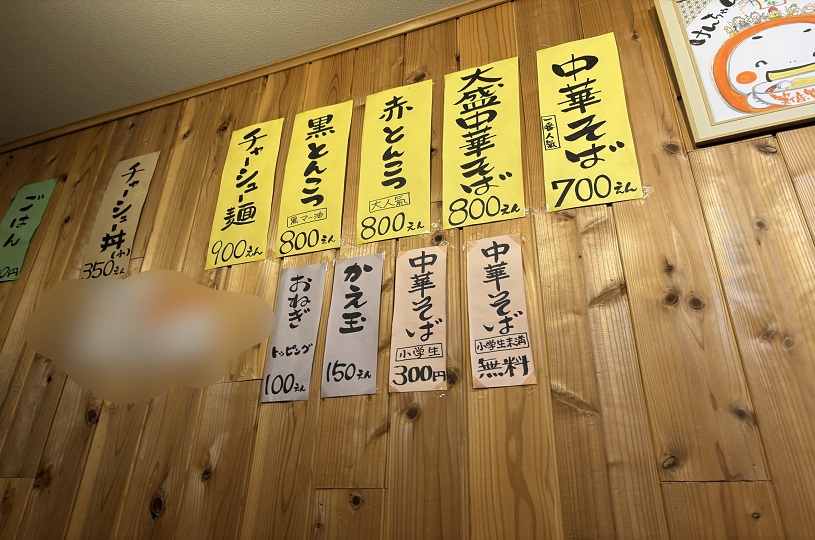 中華そば
一番人氣
700えん
大盛中華そば
800えん
赤とんこつ
大人氣
800えん
黒とんこつ
黒マー油
800えん
チャーシュー麺
900えん
チャーシュー丼
(小)
350えん
ごはん
0円
中華そば
小学生未満
無料
中華そば
小学生
300円
かえ玉
150えん
おねぎ
トッピング
100えん